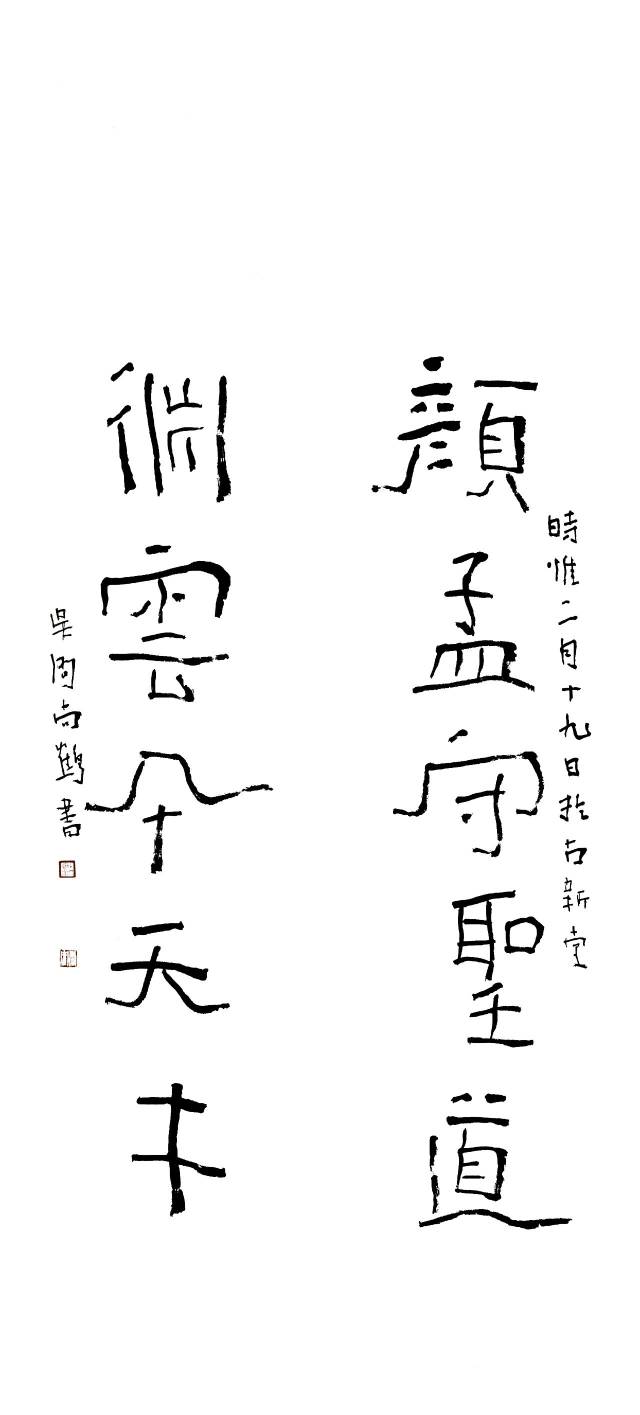 顏孟守聖道
時惟二月十九日於新堂
淵雲天才
吳周鶴書